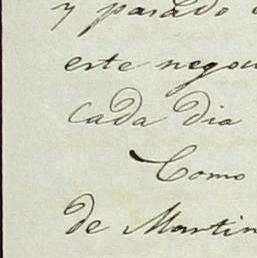 y pasado
este negoc
cada dia
Como
de Martin